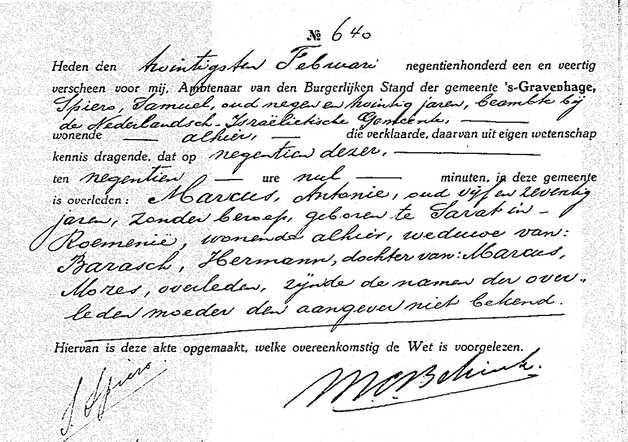 № 640
Heden den twintigsten Februari negentienhonderd een en veertig
verscheen voor mij, Ambtenaar van den Burgerlijken Stand der gemeente 's-Gravenhage,
Spiero, Samuel, oud negen en twintig jaren, beambte bij
de Nederlandsch-Israëlietische Gemeente,
wonende alhier, die verklaarde, daarvan uit eigen wetenschap
kennis dragende, dat op negentien dezer,
ten negentien ure nul minuten, in deze gemeente
is overleden: Marcus, Antonie, oud vijf en zeventig
jaren, zonder beroep, geboren te Sarat in
Roemenië, wonende alhier, weduwe van:
Barasch, Hermann, dochter van: Marcus,
Mozes, overleden, zijnde de namen der over-
leden moeder den aangever niet bekend.
Hiervan is deze akte opgemaakt, welke overeenkomstig de Wet is voorgelezen.
S. Spiero.